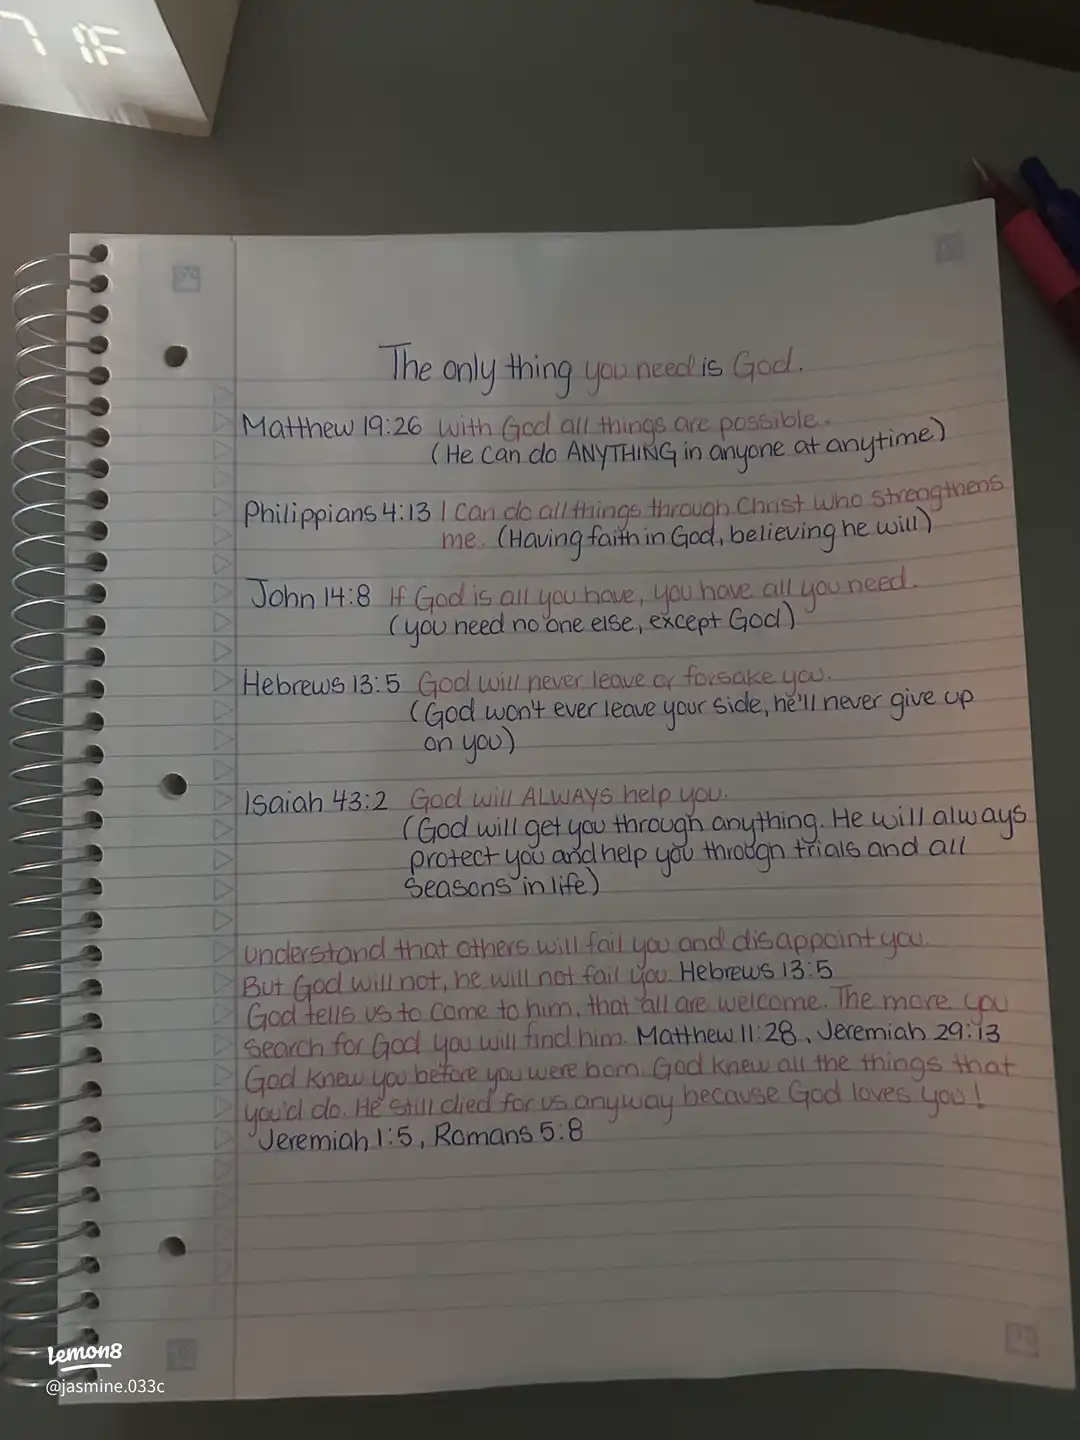 7 1F
The only thing you need is God.
Matthew 19:26 with God all things are possible.
(He can do ANYTHING in anyone at anytime)
Philippians 4:13 I can do all things through Christ who strengthens
me. (Having faith in God, believing he will)
John 14:8 If God is all you have, you have all you need.
(you need no one else, except God)
Hebrews 13:5 God will never leave or forsake you.
(God won't ever leave your side, he'll never give up
on you)
Isaiah 43:2 God will ALWAYS help you.
(God will get you through anything. He will always
protect you and help you through trials and all
seasons in life)
understand that others will fail you and disappoint you.
But God will not, he will not fail you. Hebrews 13:5
God tells us to come to him, that all are welcome. The more you
search for God you will find him. Matthew 11:28, Jeremiah 29:13
God knew you before you were born. God knew all the things that
you'd do. He still died for us anyway because God loves you!
Jeremiah 1:5, Romans 5:8
lemon8
@jasmine.033c